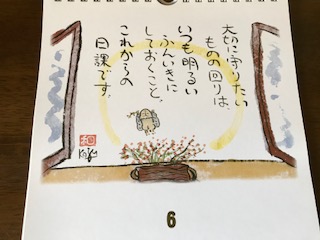 大切に守りたい
ものの回りは、
いつも明るい
ふんいきに
しておくこと。
これからの
日課です。
和
6